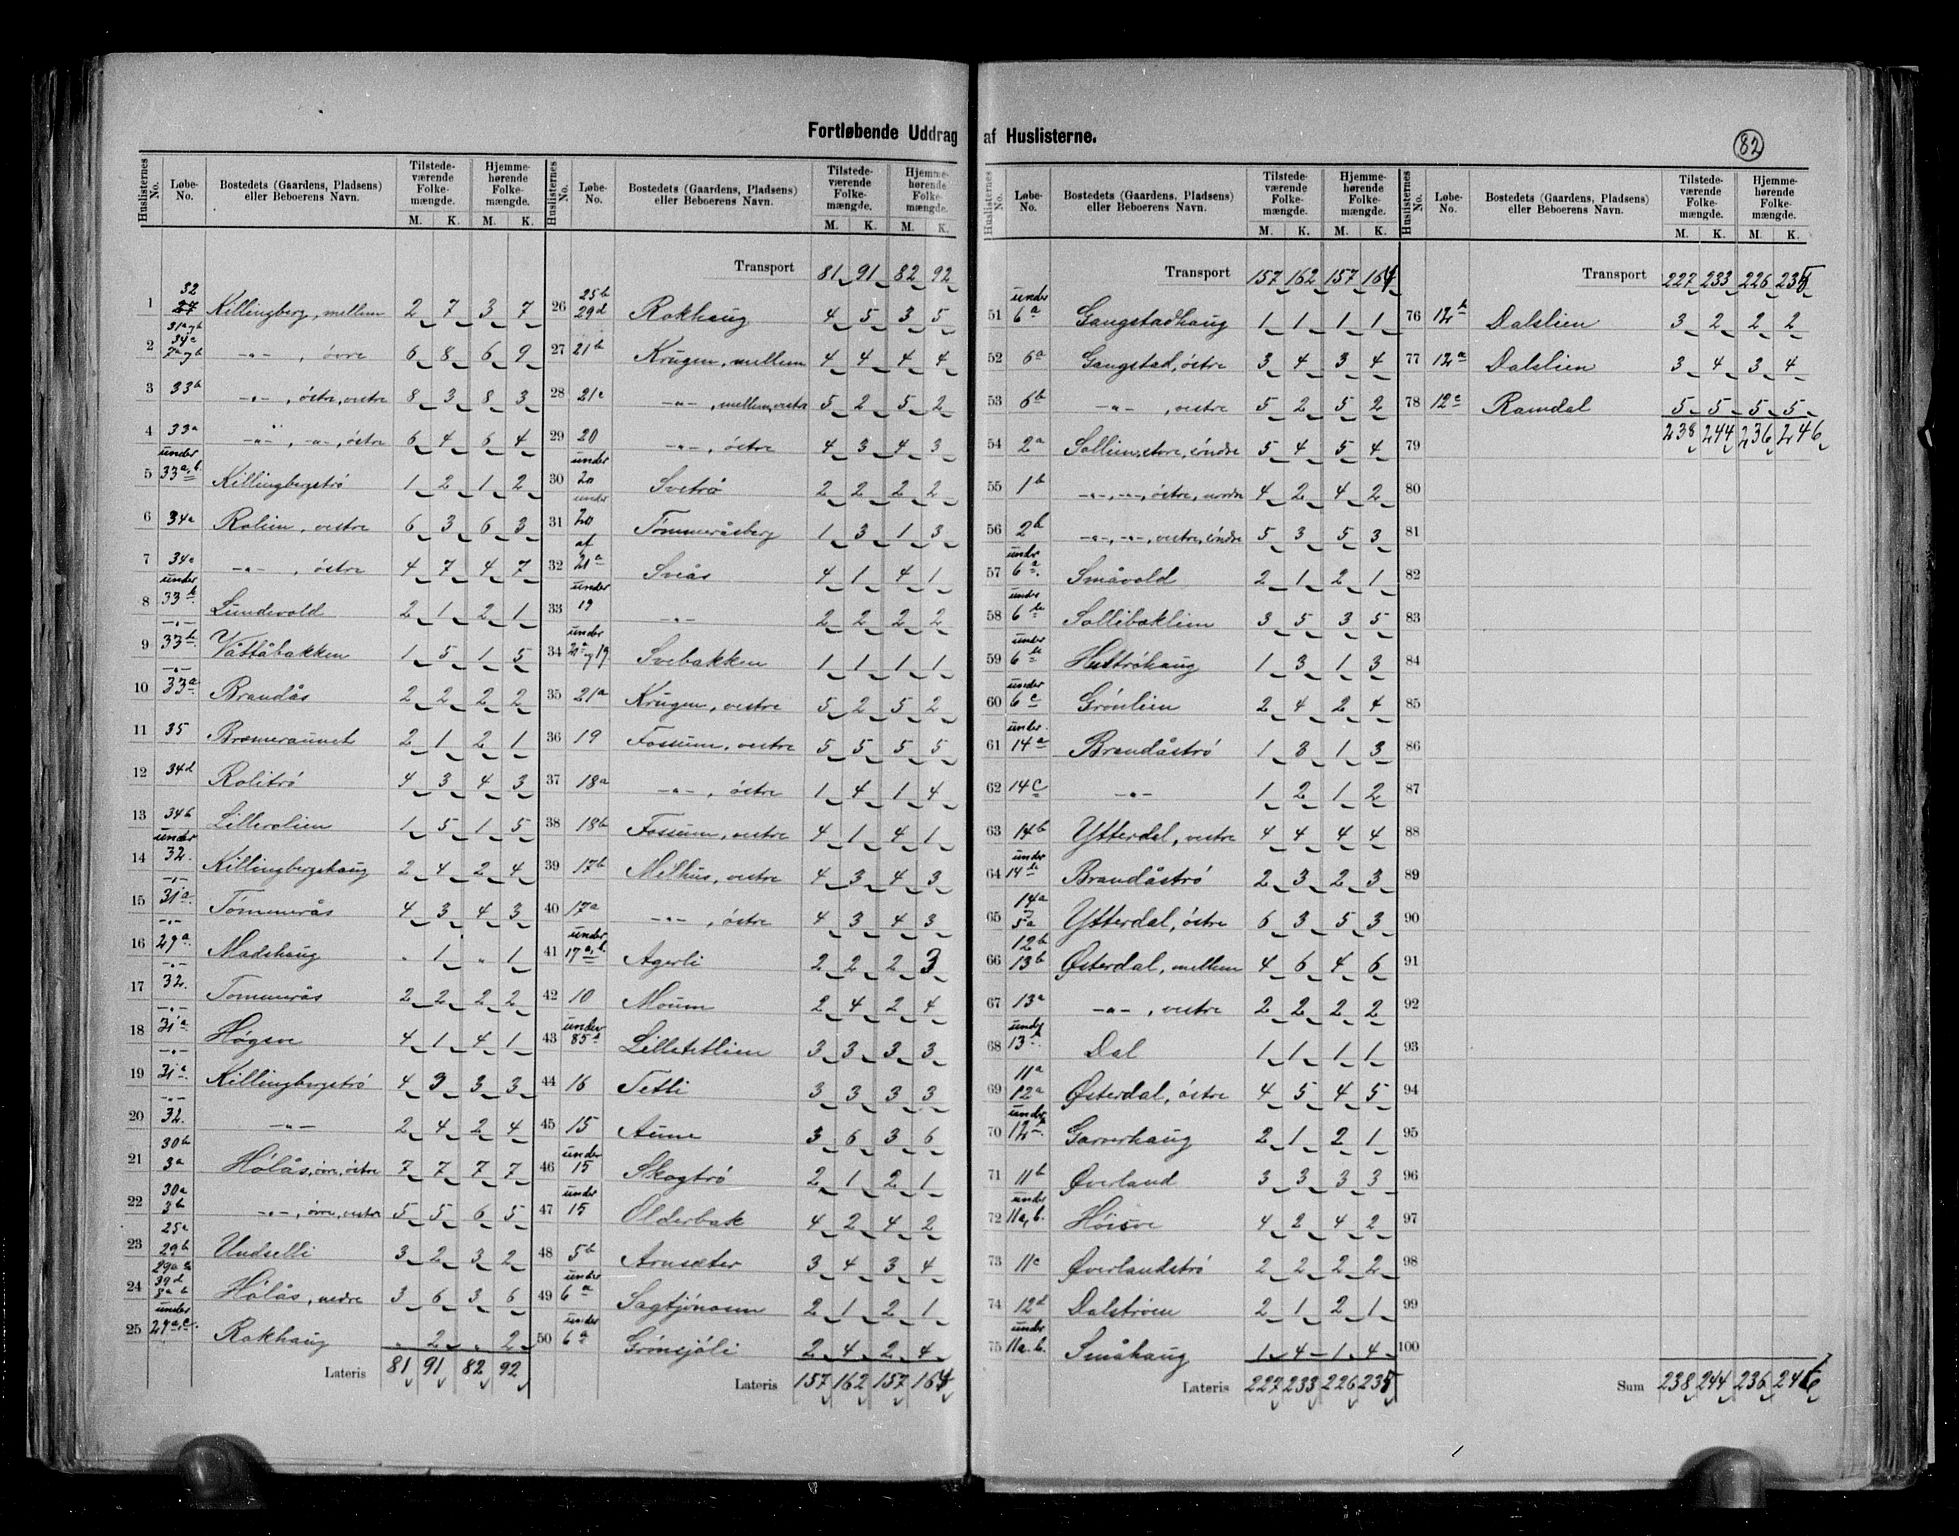 Fortløbende Uddrag af Huslisterne.
82
Huslisternes No. Løbe-No. Bostedets (Gaardens, Pladsens) eller Beboerens Navn. Tilstedeværende Folkemængde. M. K. Hjemmehørende Folkemængde. M. K.
1 32 Killingberg, mellem 2 7 3 7
2 -"-, övre 6 8 6 9
3 33b -"-, östre, vestre 8 3 8 3
4 33a -"-, -"-, östre 6 4 6 4
5 under 33a,b Killingbergströ 1 2 1 2
6 34a Rolien, vestre 6 3 6 3
7 34c -"-, östre 4 7 4 7
8 under 33b Lundevold 2 1 2 1
9 -"- 33b Våttåbakken 1 5 1 5
10 -"- 33a Brandås 2 2 2 2
11 35 Bremeraunet 2 1 2 1
12 34d Rolitrö 4 3 4 3
13 34b Lillerolien 1 5 1 5
14 under 32. Killingbergshaug 2 4 2 4
15 -"- 31a Tömmerås 4 3 4 3
16 -"- 29a Madshaug " 1 " 1
17 -"- 32. Tömmerås 2 2 2 2
18 -"- 31a Högsve 4 1 4 1
19 -"- 31a Killingbergströ 4 3 3 3
20 -"- 32. -"- 2 4 2 4
21 30b 3a Hölås, övre, östre 7 7 7 7
22 30a 3b -"-, övre, vestre 5 5 6 5
23 25a 29b Undselli 3 2 3 2
24 Hölås, nedre 3 6 3 6
25 under Rokhaug " 2 " 2
Lateris 81 91 82 92
Huslisternes No. Løbe-No. Bostedets (Gaardens, Pladsens) eller Beboerens Navn. Tilstedeværende Folkemængde. M. K. Hjemmehørende Folkemængde. M. K.
Transport 81 91 82 92
26 25b 29d Rokhaug 4 5 3 5
27 21b Krugen, mellem 4 4 4 4
28 21c -"-, mellem, vestre 5 2 5 2
29 20 -"-, östre 4 3 4 3
30 under 20 Svetrö 2 2 2 2
31 under 20 Tömmeråsberg 1 3 1 3
32 af 21a Sveås 4 1 4 1
33 under 19 -"- 2 2 2 2
34 under Svebakken 1 1 1 1
35 21a Krugen, vestre 5 2 5 2
36 19 Fossum, vestre 5 5 5 5
37 18a -"-, östre 1 4 1 4
38 18b Fossum, vestre 4 1 4 1
39 17b Melhus, vestre 4 3 4 3
40 17a -"-, östre 4 3 4 3
41 under 17a,b. Agerli 2 2 2 3
42 10 Moum 2 4 2 4
43 under 85a Lilletetlien 3 3 3 3
44 16 Tetli 3 3 3 3
45 15 Aune 3 6 3 6
46 under 15 Skogtrö 2 1 2 1
47 under 15 Olderbak 4 2 4 2
48 5b Arnsæter 3 4 3 4
49 under 6a Sagtjönåsen 2 1 2 1
50 under 6a Grönsjöli 2 4 2 4
Lateris 157 162 157 164
Huslisternes No. Løbe-No. Bostedets (Gaardens, Pladsens) eller Beboerens Navn. Tilstedeværende Folkemængde. M. K. Hjemmehørende Folkemængde. M. K.
Transport 157 162 157 164
51 under 6a Gangstadhaug 1 1 1 1
52 6a Gangstad, östre 3 4 3 4
53 6b -"-, vestre 5 2 5 2
54 2a Sollien, store, söndre 5 4 5 4
55 1b -"-, -"-, östre, nordre 4 2 4 2
56 2b -"-, -"-, vestre, söndre 5 3 5 3
57 under 6a. Småvold 2 1 2 1
58 under 6b Sollibaklien 3 5 3 5
59 under 6b Huströhaug 1 3 1 3
60 under 6c Grönlien 2 4 2 4
61 under 14a Brandåströ 1 3 1 3
62 14c -"- 1 2 1 2
63 14b Ytterdal, vestre 4 4 4 4
64 under 14b Brandåströ 2 3 2 3
65 14a 5a Ytterdal, östre 6 3 5 3
66 12b 13b Østerdal, mellem 4 6 4 6
67 13a -"-, vestre 2 2 2 2
68 under 13b Dal 1 1 1 1
69 11a 12a Østerdal, östre 4 5 4 5
70 under Garverhaug 2 1 2 1
71 11b Øverland 3 3 3 3
72 under 11a,b. Höisve 4 2 4 2
73 11c Øverlandströ 2 2 2 2
74 12d Dalströen 2 1 2 1
75 under 11a.b. Småhaug 1 4 1 4
Lateris 227 233 226 235
Huslisternes No. Løbe-No. Bostedets (Gaardens, Pladsens) eller Beboerens Navn. Tilstedeværende Folkemængde. M. K. Hjemmehørende Folkemængde. M. K.
Transport 227 233 226 235
76 12b Dalslien 3 2 2 2
77 12a Dalslien 3 4 3 4
78 12c Ramdal 5 5 5 5
79 238 244 236 246
80
81
82
83
84
85
86
87
88
89
90
91
92
93
94
95
96
97
98
99
100
Sum 238 244 236 246